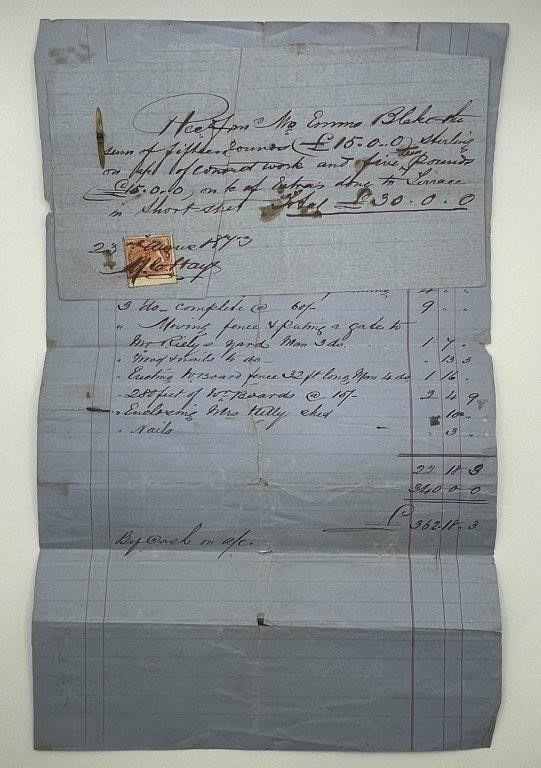 Rec'd from Mrs Emma Blake the
sum of fifteen Pounds (£15-0-0) sterling
on a/c of contract work and fifteen Pounds
£15-0-0 on a/c of Extras done to Terrace
in Short Street Total £30.0.0
23rd August 1873
M O Hay
3 do- complete @ 60/- 9 " "
" Moving fence & Puting a gate to
Mr Riely's yard Man 3 ds. 1 7 "
" Wood & nails to do " 13 3
" Erecting W. Board fence 32 ft long Man 4 ds 1 16 "
" 280 feet of Wr Boards @ 16/- 2 4 9
" Enclosing Mrs Kelly shed " 10 "
" Nails - " 3 "
22 18 3
340-0-0
£ 362-18-3
By Cash on a/c